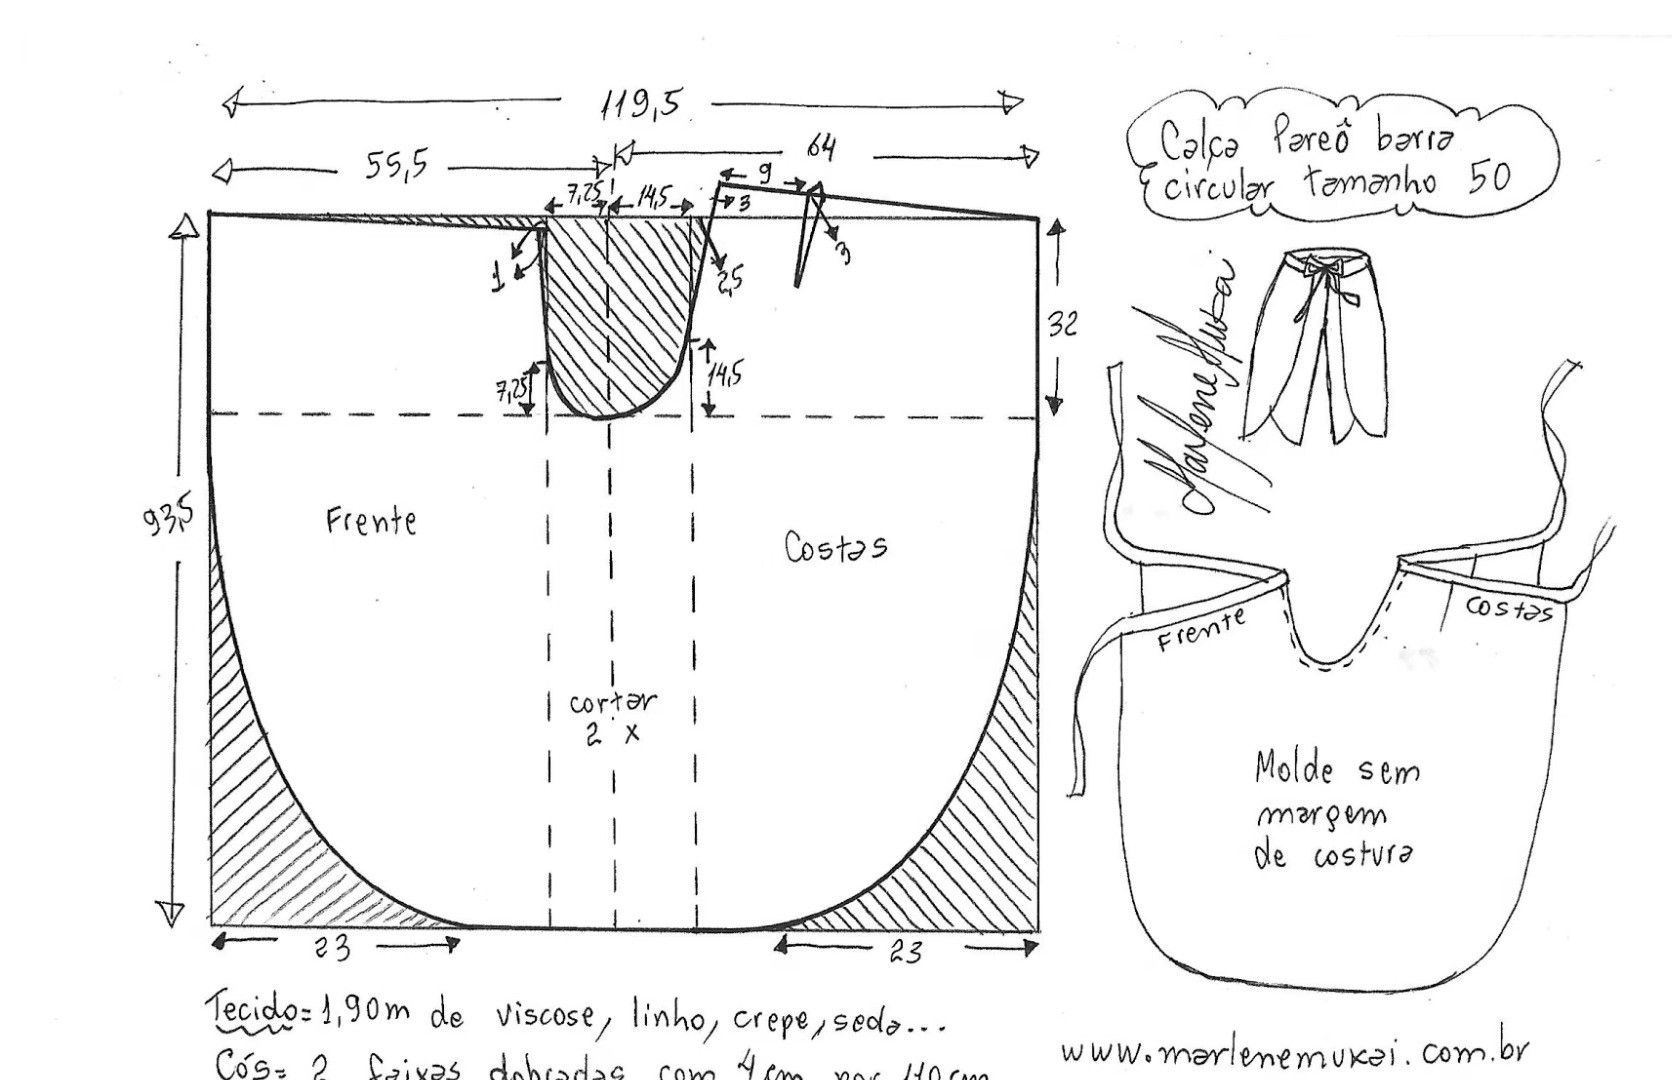 119,5
55,5
64
9
7,25
14,5
3
1
2,5
3
32
7,25
14,5
93,5
Frente
Costas
cortar
2 x
23
23
Calça Pareô barra
circular tamanho 50
Marlene Mukai
Frente
costas
Molde sem
margem
de costura
Tecido= 1,90m de viscose, linho, crepe, seda...
Cós= 2 faixas dobradas com 4cm por 110cm
www.marlenemukai.com.br